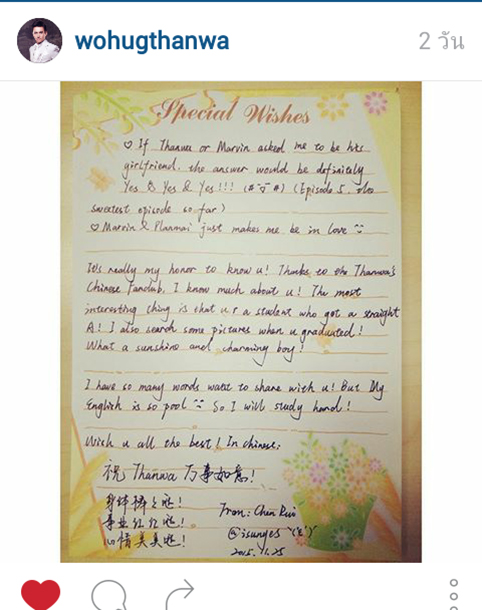 wohugthanwa
2 วัน
Special Wishes
♡ If Thanwa or Marvin asked me to be his
girlfriend, the answer would be definitely
Yes & Yes & Yes!!! (Episode 5, the
sweetest episode so far)
♡ Marvin & Planmai just makes me be in love
It's really my honor to know u! Thanks to the Thanwa's
Chinese Fanclub, I know much about u! The most
interesting thing is that u r a student who got a straight
A! I also search some pictures when u graduated!
What a sunshine and charming boy!
I have so many words want to share with u! But My
English is so pool So I will study hard!
Wish u all the best! In Chinese:
祝 Thanwa 万事如意!
身体棒棒哒!
事业红红哒!
心情美美哒!
From: Chen Rui
@isunyes
2015.11.25